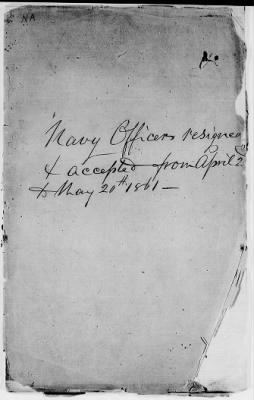 NA
Navy Officers resigned
& accepted from April 2
to May 20th 1861 —